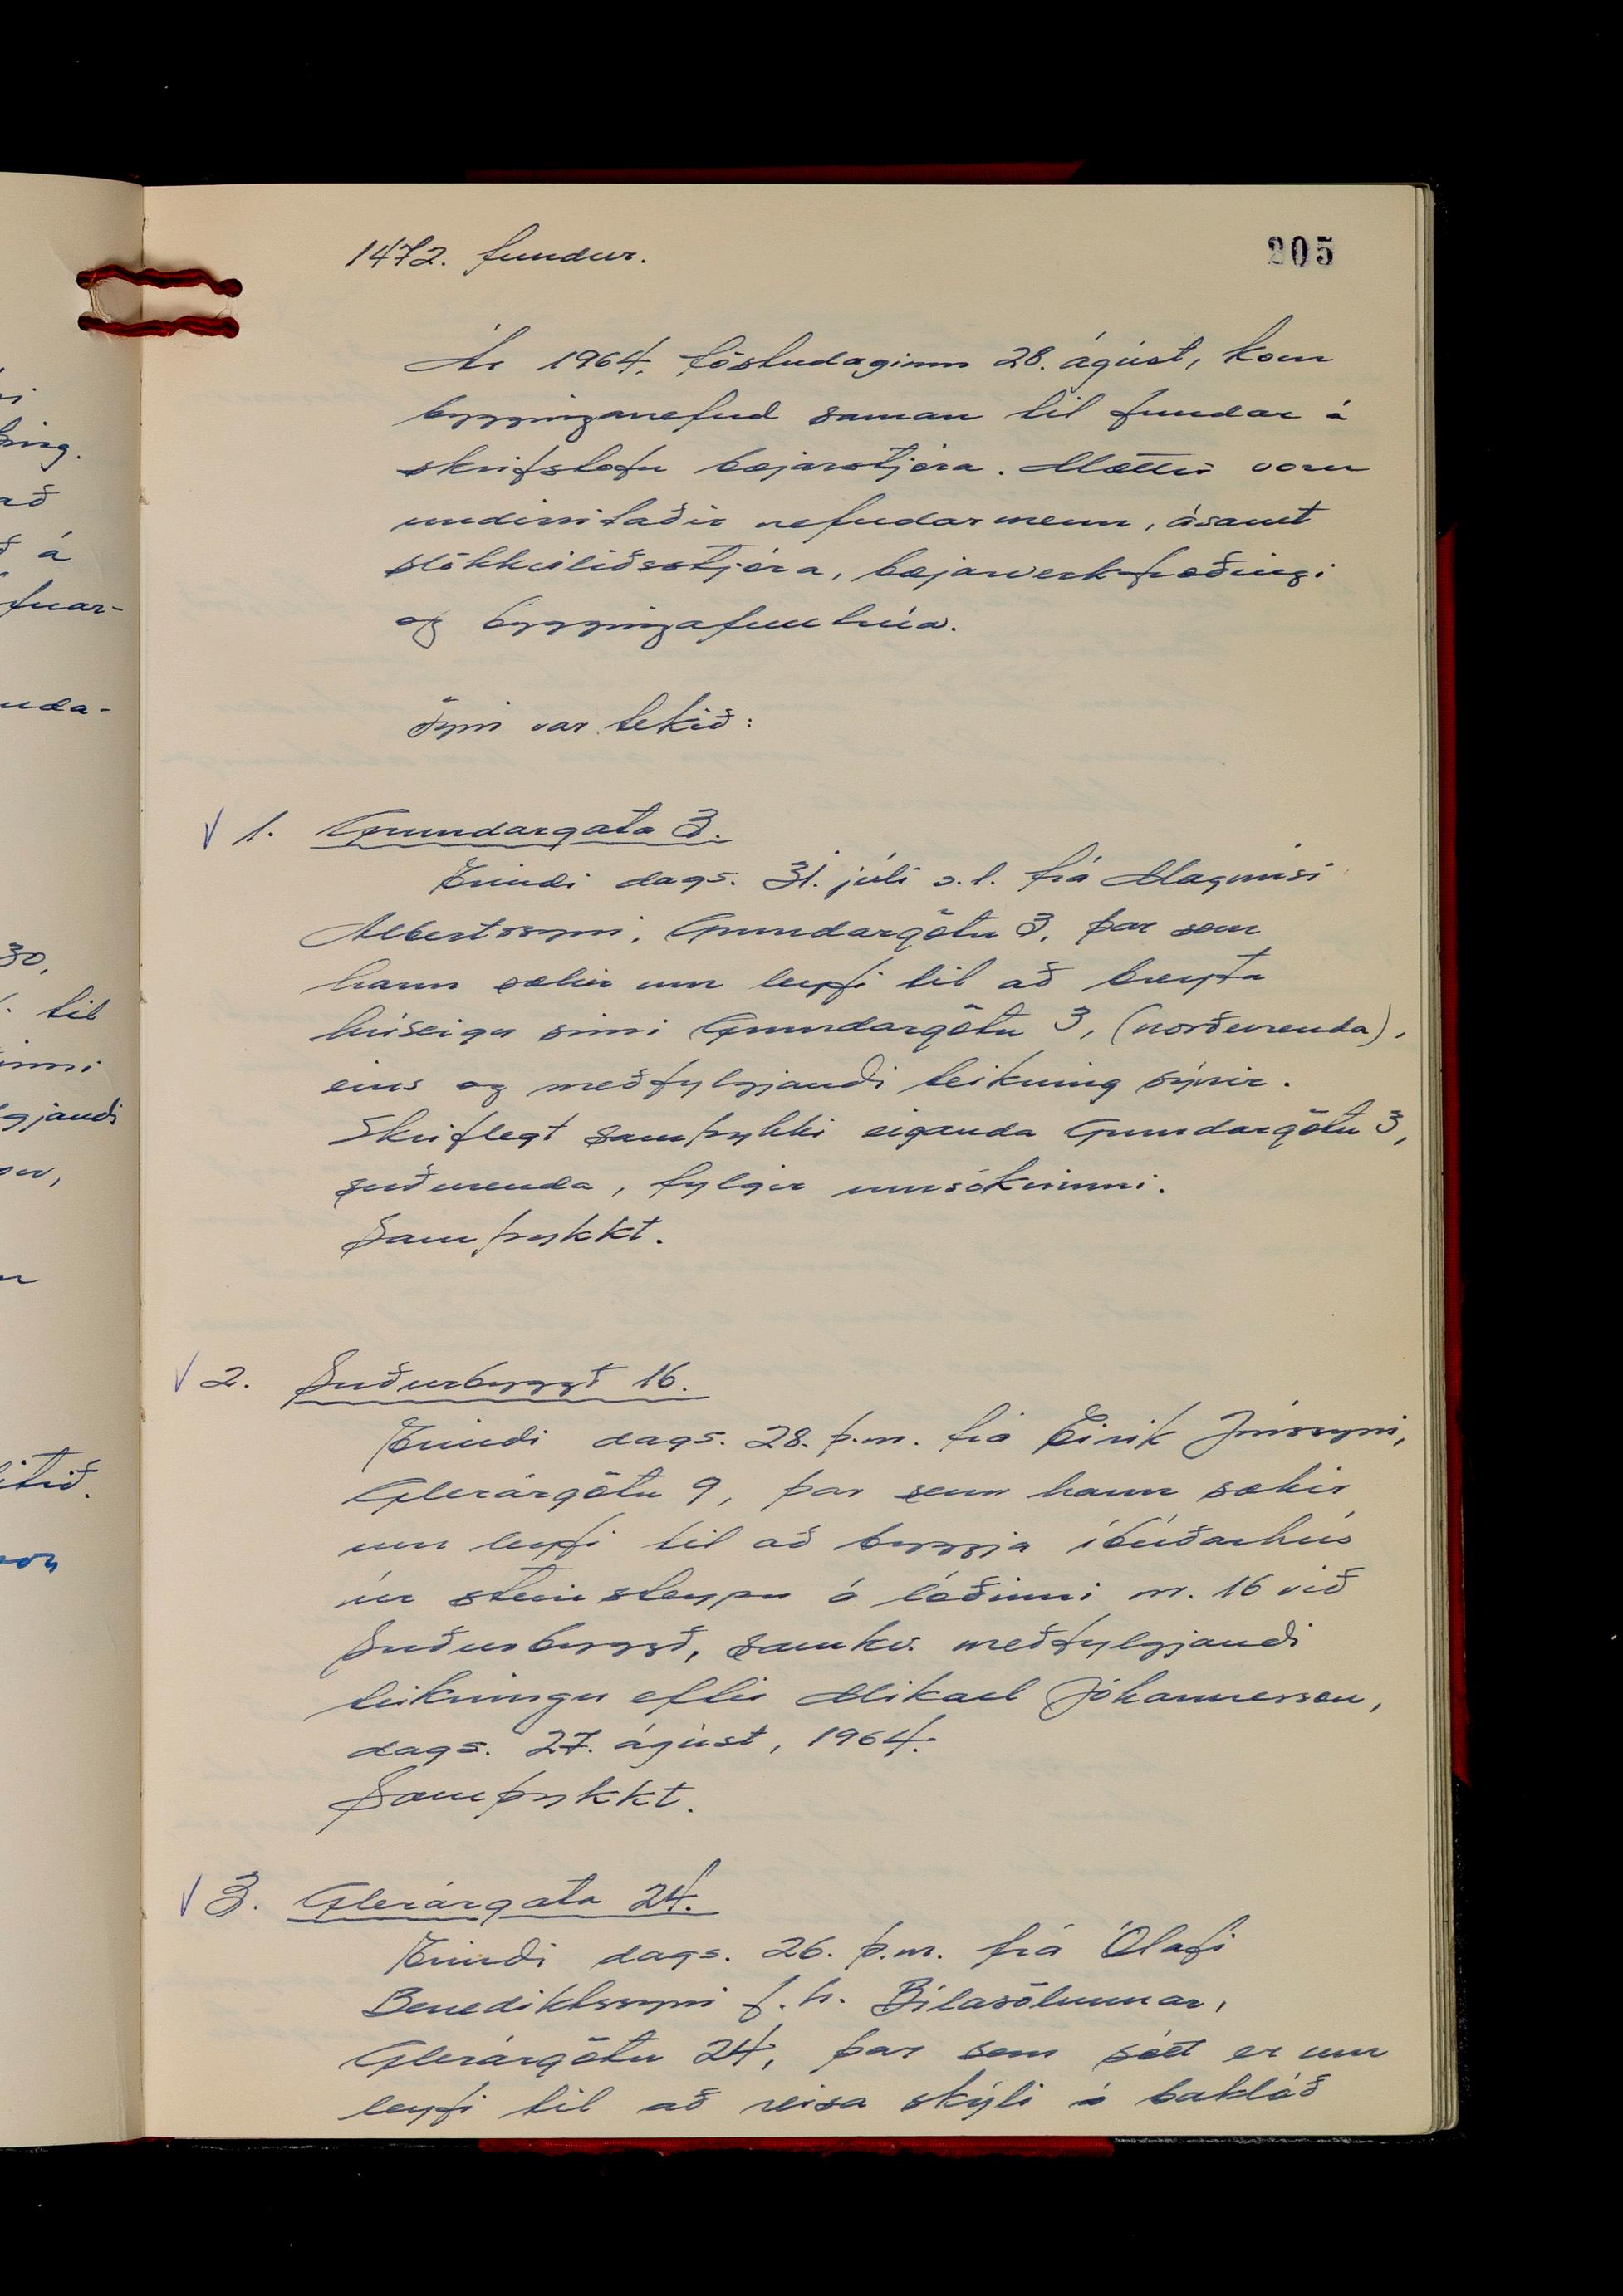 1472. fundur.
205
Ár 1964, föstudaginn 28. ágúst, kom
bygginganefnd saman til fundar á
skrifstofu bæjarstjóra. Mættir voru
undirritaðir nefndarmenn, ásamt
slökkviliðsstjóra, bæjarverkfræðingi
og byggingafulltrúa.
Fyrir var tekið:
1. Grundargata 3.
Erindi dags. 31. júlí s.l. frá Magnúsi
Albertssyni, Grundargötu 3, þar sem
hann sækir um leyfi til að breyta
húseign sinni Grundargötu 3, (norðurenda),
eins og meðfylgjandi teikning sýnir.
Skriflegt samþykki eiganda Grundargötu 3,
suðurenda, fylgir umsókninni.
Samþykkt.
2. Suðurbyggð 16.
Erindi dags. 28. þ.m. frá Eirík Jónssyni,
Glerárgötu 9, þar sem hann sækir
um leyfi til að byggja íbúðarhús
úr steinsteypu á lóðinni nr. 16 við
Suðurbyggð, samkv. meðfylgjandi
teikningu eftir Mikael Jóhannesson,
dags. 27. ágúst, 1964.
Samþykkt.
3. Glerárgata 24.
Erindi dags. 26. þ.m. frá Ólafi
Benediktssyni f.h. Bílasölunnar,
Glerárgötu 24, þar sem sótt er um
leyfi til að reisa skýli á baklóð